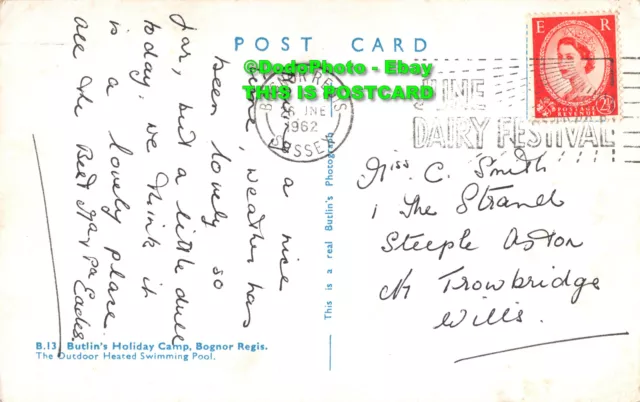 POST CARD
©DodoPhoto - Ebay
THIS IS POSTCARD
E R
POSTAGE
REVENUE
2½
BOGNOR REGIS
JNE
1962
SUSSEX
JUNE
DAIRY FESTIVAL
Having a nice
time, weather has
been lovely so
far, but a little dull
today. We think it
is a lovely place.
All the Best
Eades
This is a real Butlin's Photograph
Miss C. Smith
1 The Strand
Steeple Aston
Nr Trowbridge
Wilts.
B.13. Butlin's Holiday Camp, Bognor Regis.
The Outdoor Heated Swimming Pool.